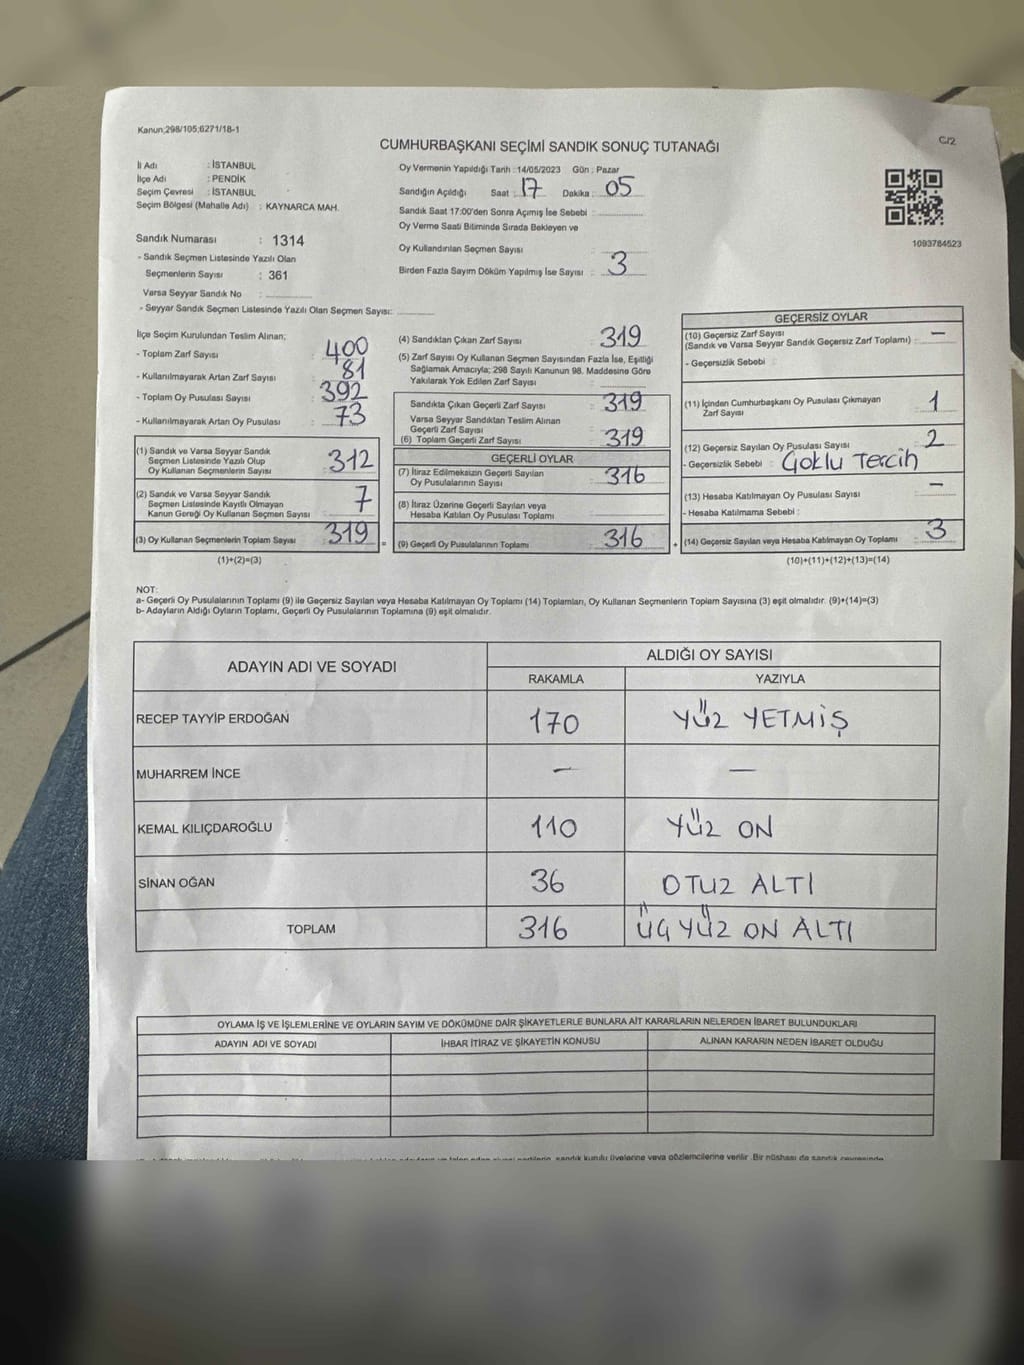 Kanun;298/105;6271/18-1
C/2
CUMHURBAŞKANI SEÇİMİ SANDIK SONUÇ TUTANAĞI
İl Adı : İSTANBUL
İlçe Adı : PENDİK
Seçim Çevresi : İSTANBUL
Seçim Bölgesi (Mahalle Adı) : KAYNARCA MAH.
Sandık Numarası : 1314
- Sandık Seçmen Listesinde Yazılı Olan
Seçmenlerin Sayısı : 361
Varsa Seyyar Sandık No :
- Seyyar Sandık Seçmen Listesinde Yazılı Olan Seçmen Sayısı:
Oy Vermenin Yapıldığı Tarih : 14/05/2023 Gün : Pazar
Sandığın Açıldığı Saat : 17 Dakika : 05
Sandık Saat 17:00'den Sonra Açımış İse Sebebi :
Oy Verme Saati Bitiminde Sırada Bekleyen ve
Oy Kullandırılan Seçmen Sayısı :
Birden Fazla Sayım Döküm Yapılmış İse Sayısı : 3
1093784523
İlçe Seçim Kurulundan Teslim Alınan;
- Toplam Zarf Sayısı : 400
- Kullanılmayarak Artan Zarf Sayısı : 81
- Toplam Oy Pusulası Sayısı : 392
- Kullanılmayarak Artan Oy Pusulası : 73
(1) Sandık ve Varsa Seyyar Sandık
Seçmen Listesinde Yazılı Olup
Oy Kullanan Seçmen Sayısı : 312
(2) Sandık ve Varsa Seyyar Sandık
Seçmen Listesinde Kayıtlı Olmayan
Kanun Gereği Oy Kullanan Seçmen Sayısı : 7
(3) Oy Kullanan Seçmenlerin Toplam Sayısı : 319 =
(1)+(2)=(3)
(4) Sandıktan Çıkan Zarf Sayısı : 319
(5) Zarf Sayısı Oy Kullanan Seçmen Sayısından Fazla İse, Eşitliği
Sağlamak Amacıyla; 298 Sayılı Kanunun 98. Maddesine Göre
Yakılarak Yok Edilen Zarf Sayısı :
Sandıkta Çıkan Geçerli Zarf Sayısı : 319
Varsa Seyyar Sandıktan Teslim Alınan
Geçerli Zarf Sayısı :
(6) Toplam Geçerli Zarf Sayısı : 319
GEÇERLİ OYLAR
(7) İtiraz Edilmeksizin Geçerli Sayılan
Oy Pusulalarının Sayısı : 316
(8) İtiraz Üzerine Geçerli Sayılan veya
Hesaba Katılan Oy Pusulası Toplamı :
(9) Geçerli Oy Pusulalarının Toplamı : 316 +
GEÇERSİZ OYLAR
(10) Geçersiz Zarf Sayısı
(Sandık ve Varsa Seyyar Sandık Geçersiz Zarf Toplamı) : —
- Geçersizlik Sebebi :
(11) İçinden Cumhurbaşkanı Oy Pusulası Çıkmayan
Zarf Sayısı : 1
(12) Geçersiz Sayılan Oy Pusulası Sayısı : 2
- Geçersizlik Sebebi : Çoklu Tercih
(13) Hesaba Katılmayan Oy Pusulası Sayısı : —
- Hesaba Katılmama Sebebi :
(14) Geçersiz Sayılan veya Hesaba Katılmayan Oy Toplamı : 3
(10)+(11)+(12)+(13)=(14)
NOT:
a- Geçerli Oy Pusulalarının Toplamı (9) ile Geçersiz Sayılan veya Hesaba Katılmayan Oy Toplamı (14) Toplamları, Oy Kullanan Seçmenlerin Toplam Sayısına (3) eşit olmalıdır. (9)+(14)=(3)
b- Adayların Aldığı Oyların Toplamı, Geçerli Oy Pusulalarının Toplamına (9) eşit olmalıdır.
ADAYIN ADI VE SOYADI ALDIĞI OY SAYISI
RAKAMLA YAZIYLA
RECEP TAYYİP ERDOĞAN 170 YÜZ YETMİŞ
MUHARREM İNCE — —
KEMAL KILIÇDAROĞLU 110 YÜZ ON
SİNAN OĞAN 36 OTUZ ALTI
TOPLAM 316 ÜÇ YÜZ ON ALTI
OYLAMA İŞ VE İŞLEMLERİNE VE OYLARIN SAYIM VE DÖKÜMÜNE DAİR ŞİKAYETLERLE BUNLARA AİT KARARLARIN NELERDEN İBARET BULUNDUKLARI
ADAYIN ADI VE SOYADI İHBAR İTİRAZ VE ŞİKAYETİN KONUSU ALINAN KARARIN NEDEN İBARET OLDUĞU
sandık kurulu üyelerine veya gözlemcilerine verilir. Bir nüshası da sandık çevresinde